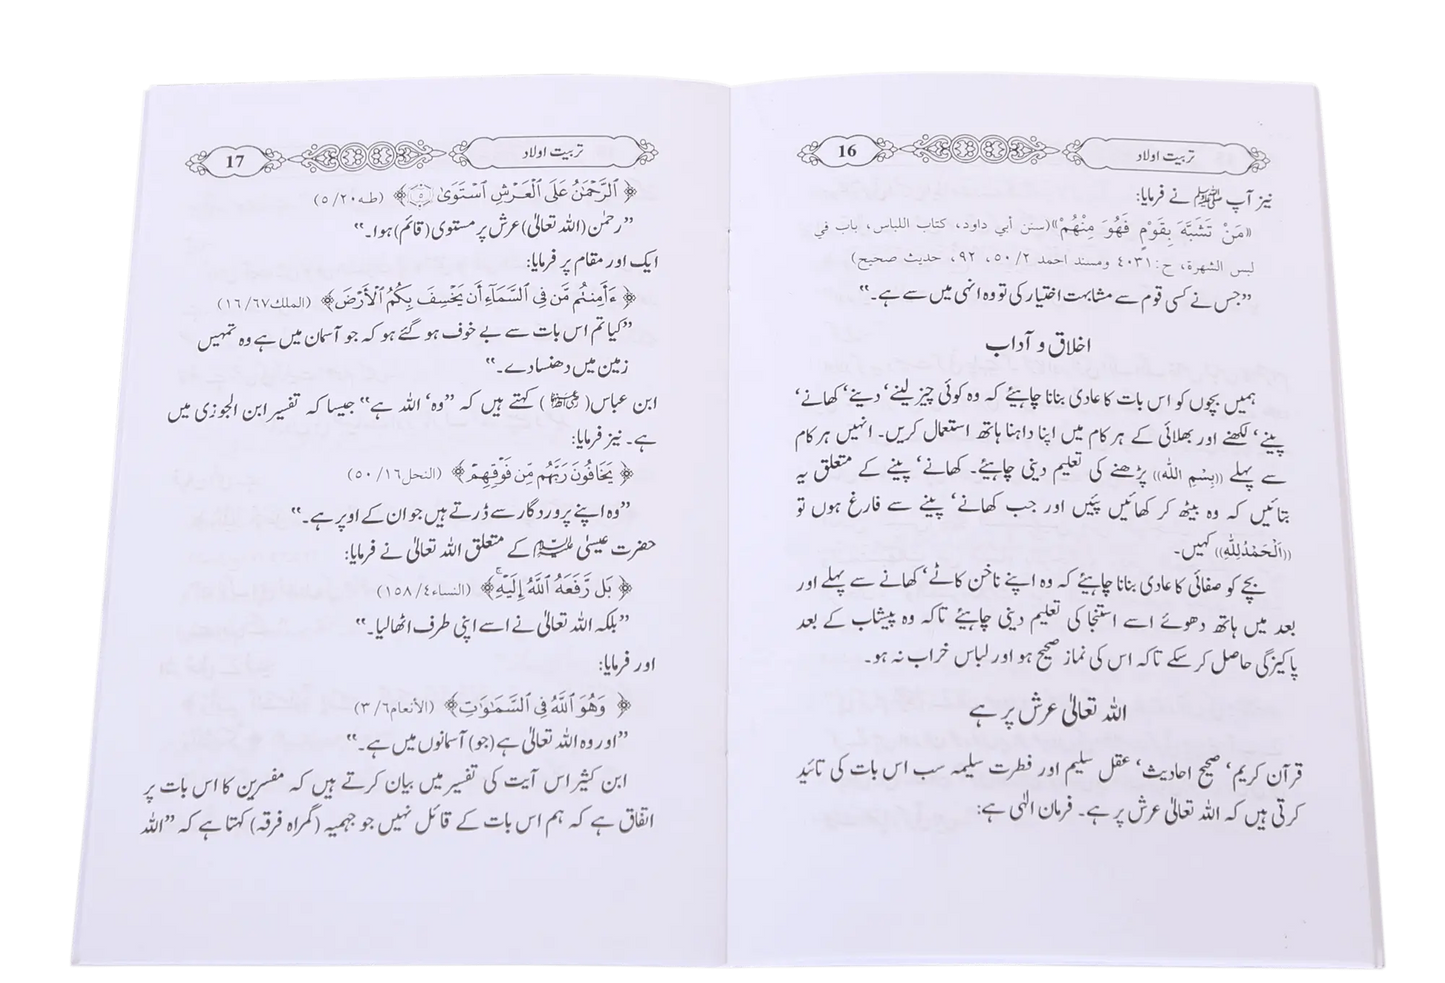 16
تربیت اولاد
نیز آپ ﷺ نے فرمایا:
«مَنْ تَشَبَّهَ بِقَوْمٍ فَهُوَ مِنْهُمْ»(سنن أبي داود، كتاب اللباس، باب في
لبس الشهرة، ح:٤٠٣١ ومسند احمد ٢/ ٥٠، ٩٢، حديث صحيح)
”جس نے کسی قوم سے مشابہت اختیار کی تو وہ انہی میں سے ہے۔“
اخلاق و آداب
ہمیں بچوں کو اس بات کا عادی بنانا چاہیئے کہ وہ کوئی چیز لینے‘ دینے‘ کھانے‘
پینے‘ لکھنے اور بھلائی کے ہر کام میں اپنا داہنا ہاتھ استعمال کریں۔ انہیں ہر کام
سے پہلے ((بِسْمِ اللہ)) پڑھنے کی تعلیم دینی چاہیئے۔ کھانے‘ پینے کے متعلق یہ
بتائیں کہ وہ بیٹھ کر کھائیں پئیں اور جب کھانے‘ پینے سے فارغ ہوں تو
((اَلْحَمْدُلِلّٰہِ)) کہیں۔
بچے کو صفائی کا عادی بنانا چاہیئے کہ وہ اپنے ناخن کاٹے‘ کھانے سے پہلے اور
بعد میں ہاتھ دھوئے اسے استنجا کی تعلیم دینی چاہیئے تاکہ وہ پیشاب کے بعد
پاکیزگی حاصل کر سکے تاکہ اس کی نماز صحیح ہو اور لباس خراب نہ ہو۔
اللہ تعالیٰ عرش پر ہے
قرآن کریم‘ صحیح احادیث‘ عقل سلیم اور فطرت سلیمہ سب اس بات کی تائید
کرتی ہیں کہ اللہ تعالیٰ عرش پر ہے۔ فرمان الٰہی ہے:
17
تربیت اولاد
﴿ٱلرَّحْمَٰنُ عَلَى ٱلْعَرْشِ ٱسْتَوَىٰ ۝٥﴾ (طہ٢٠/ ٥)
”رحمٰن (اللہ تعالیٰ) عرش پر مستوی (قائم) ہوا۔“
ایک اور مقام پر فرمایا:
﴿ءَأَمِنتُم مَّن فِى ٱلسَّمَآءِ أَن يَخْسِفَ بِكُمُ ٱلْأَرْضَ﴾ (الملك٦٧/ ١٦)
”کیا تم اس بات سے بے خوف ہو گئے ہو کہ جو آسمان میں ہے وہ تمہیں
زمین میں دھنسا دے۔“
ابن عباس( رضی اللہ عنہما ) کہتے ہیں کہ ”وہ‘ اللہ ہے“ جیسا کہ تفسیر ابن الجوزی میں
ہے۔ نیز فرمایا:
﴿يَخَافُونَ رَبَّهُم مِّن فَوْقِهِمْ﴾ (النحل١٦/ ٥٠)
”وہ اپنے پروردگار سے ڈرتے ہیں جو ان کے اوپر ہے۔“
حضرت عیسیٰ علیہ السلام کے متعلق اللہ تعالیٰ نے فرمایا:
﴿بَل رَّفَعَهُ ٱللَّهُ إِلَيْهِ ۚ﴾ (النساء٤/ ١٥٨)
”بلکہ اللہ تعالیٰ نے اسے اپنی طرف اٹھا لیا۔“
اور فرمایا:
﴿وَهُوَ ٱللَّهُ فِى ٱلسَّمَٰوَٰتِ﴾ (الأنعام٦/ ٣)
”اور وہ اللہ تعالیٰ ہے (جو) آسمانوں میں ہے۔“
ابن کثیر اس آیت کی تفسیر میں بیان کرتے ہیں کہ مفسرین کا اس بات پر
اتفاق ہے کہ ہم اس بات کے قائل نہیں جو جہمیہ (گمراہ فرقہ) کہتا ہے کہ ”اللہ